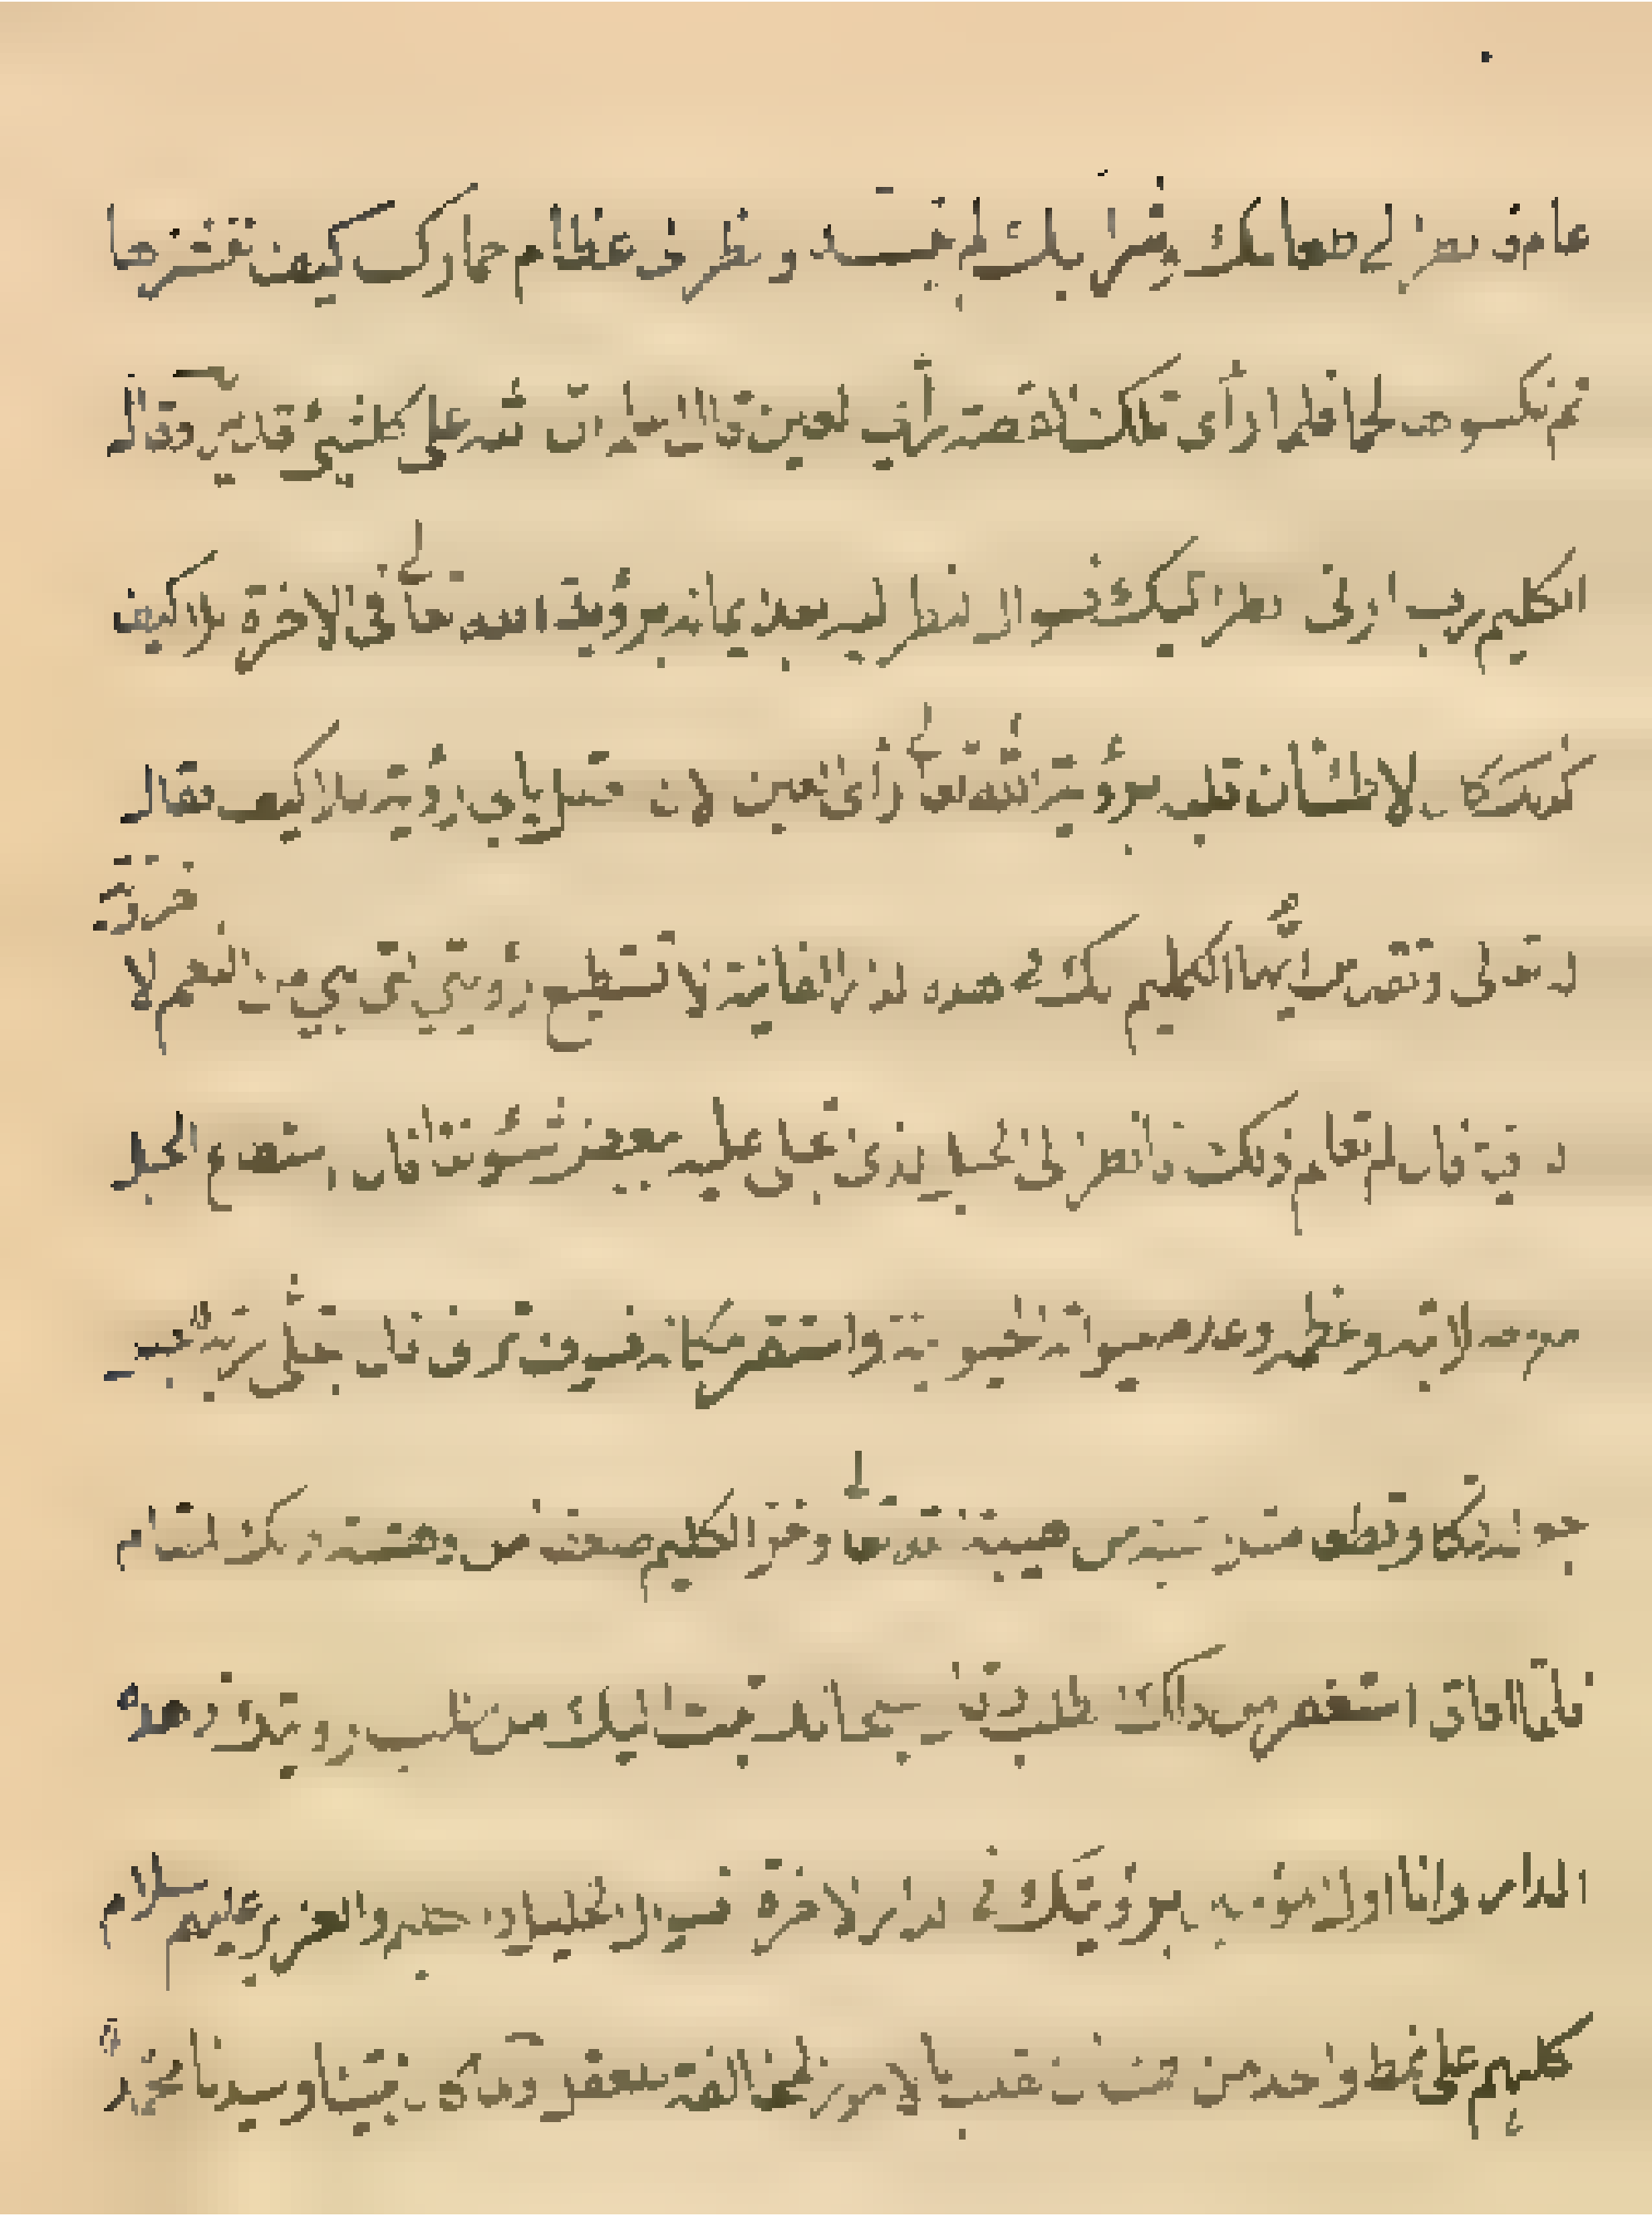 عام فانظر الى طعامك وشرابك لم يتسنه ونظر الى عظام حمارك كيف ننشزها
ثم نكسوها لحما فلما رأى تلك القصة رأي العين قال اعلم ان الله على كل شيئ قدير وقال
الكليم رب ارنى انظر اليك فسوال النظر ليه بعد ايمانه برؤية الله تعالى فى الاخرة بلا كيف
كذلك كان لاطمئنان قلبه برؤية الله تعالى رأى العين لان قيل يا ربي رؤيته بلا كيف فقال
له تعالى وتقدس ايها الكليم انك في هذه الدار الفانية لا تستطيع رؤيتي حتى من الفهم لا
قال لم تعلم ذلك فانظر الى الجبل الذى تجلى عليه ببعض شئوننا فان استطاع الجبل
مع صلابته وعظمه وعدم حيوانه الحيوانية واستقر مكانه فسوف ترانى فان تجلى ربه للجبل
جعله دكا وقطعا من هيبة الله تعالى وخر الكليم صعقا من دهشته ذلك المقام
فلما افاق استغفر من ذلك الطلب وقال سبحانك تبت اليك من طلب رويتك فى هذه
الدار وانا اول مؤمن برؤيتك في الدار الاخرة فسوال الخليل و والعزير عليهم السلام
كلهم على نمط واحد من القلب بالامور المخالفة للعقل و كان نبينا وسيدنا محمد